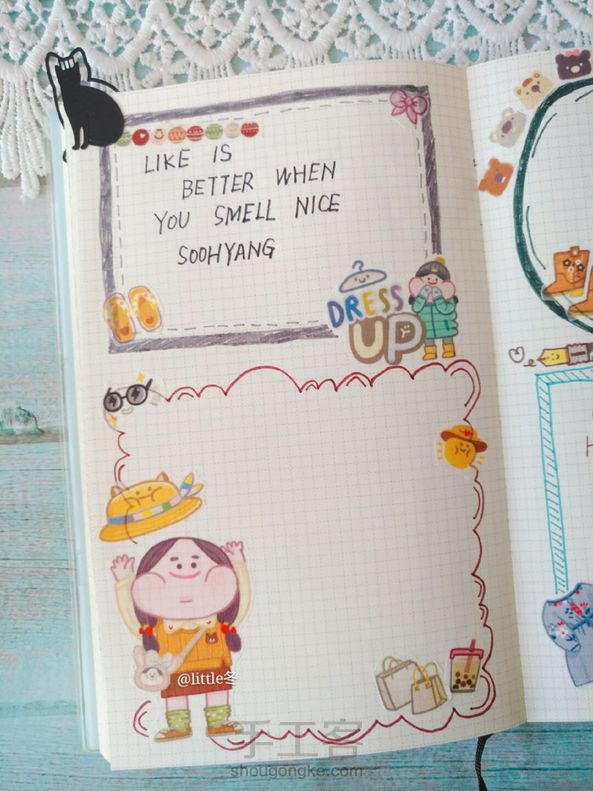 LIKE IS
BETTER WHEN
YOU SMELL NICE
SOOHYANG
DRESS
UP
H
@little冬
手工客
shougongke.com